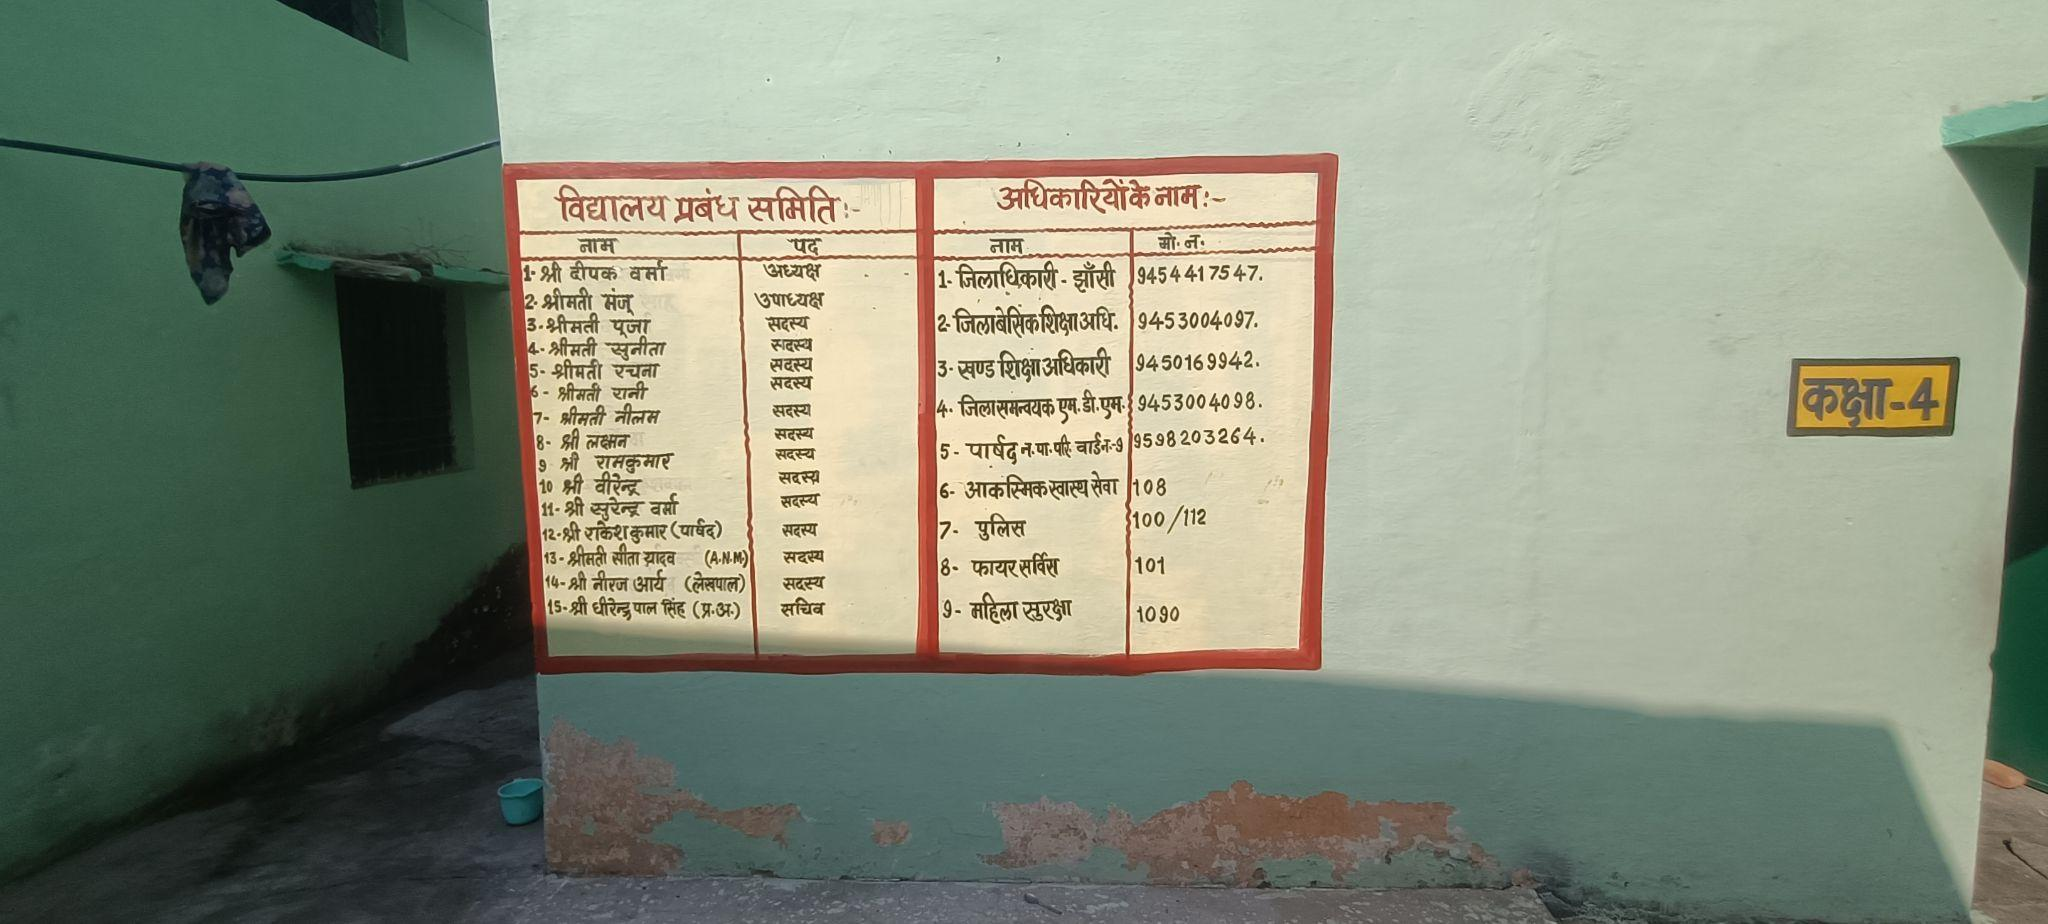 विद्यालय प्रबंध समिति:-
नाम पद
1- श्री दीपक वर्मा अध्यक्ष
2- श्रीमती मंजू उपाध्यक्ष
3- श्रीमती पूजा सदस्य
4- श्रीमती सुनीता सदस्य
5- श्रीमती रचना सदस्य
6- श्रीमती रानी सदस्य
7- श्रीमती नीलम सदस्य
8- श्री लक्ष्मन सदस्य
9 श्री रामकुमार सदस्य
10 श्री वीरेन्द्र सदस्य
11- श्री सुरेन्द्र वर्मा सदस्य
12- श्री राकेश कुमार (पार्षद) सदस्य
13- श्रीमती सीता यादव (A.N.M.) सदस्य
14- श्री नीरज आर्य (लेखपाल) सदस्य
15- श्री धीरेन्द्र पाल सिंह (प्र.अ.) सचिव
अधिकारियों के नाम:-
नाम मो. न.
1- जिलाधिकारी - झाँसी 9454417547.
2- जिला बेसिक शिक्षा अधि. 9453004097.
3- खण्ड शिक्षा अधिकारी 9450169942.
4- जिला समन्वयक एम. डी. एम. 9453004098.
5- पार्षद न. पा. परि. वार्ड न.-9 9598203264.
6- आकस्मिक स्वास्थ सेवा 108
7- पुलिस 100/112
8- फायर सर्विस 101
9- महिला सुरक्षा 1090
कक्षा-4